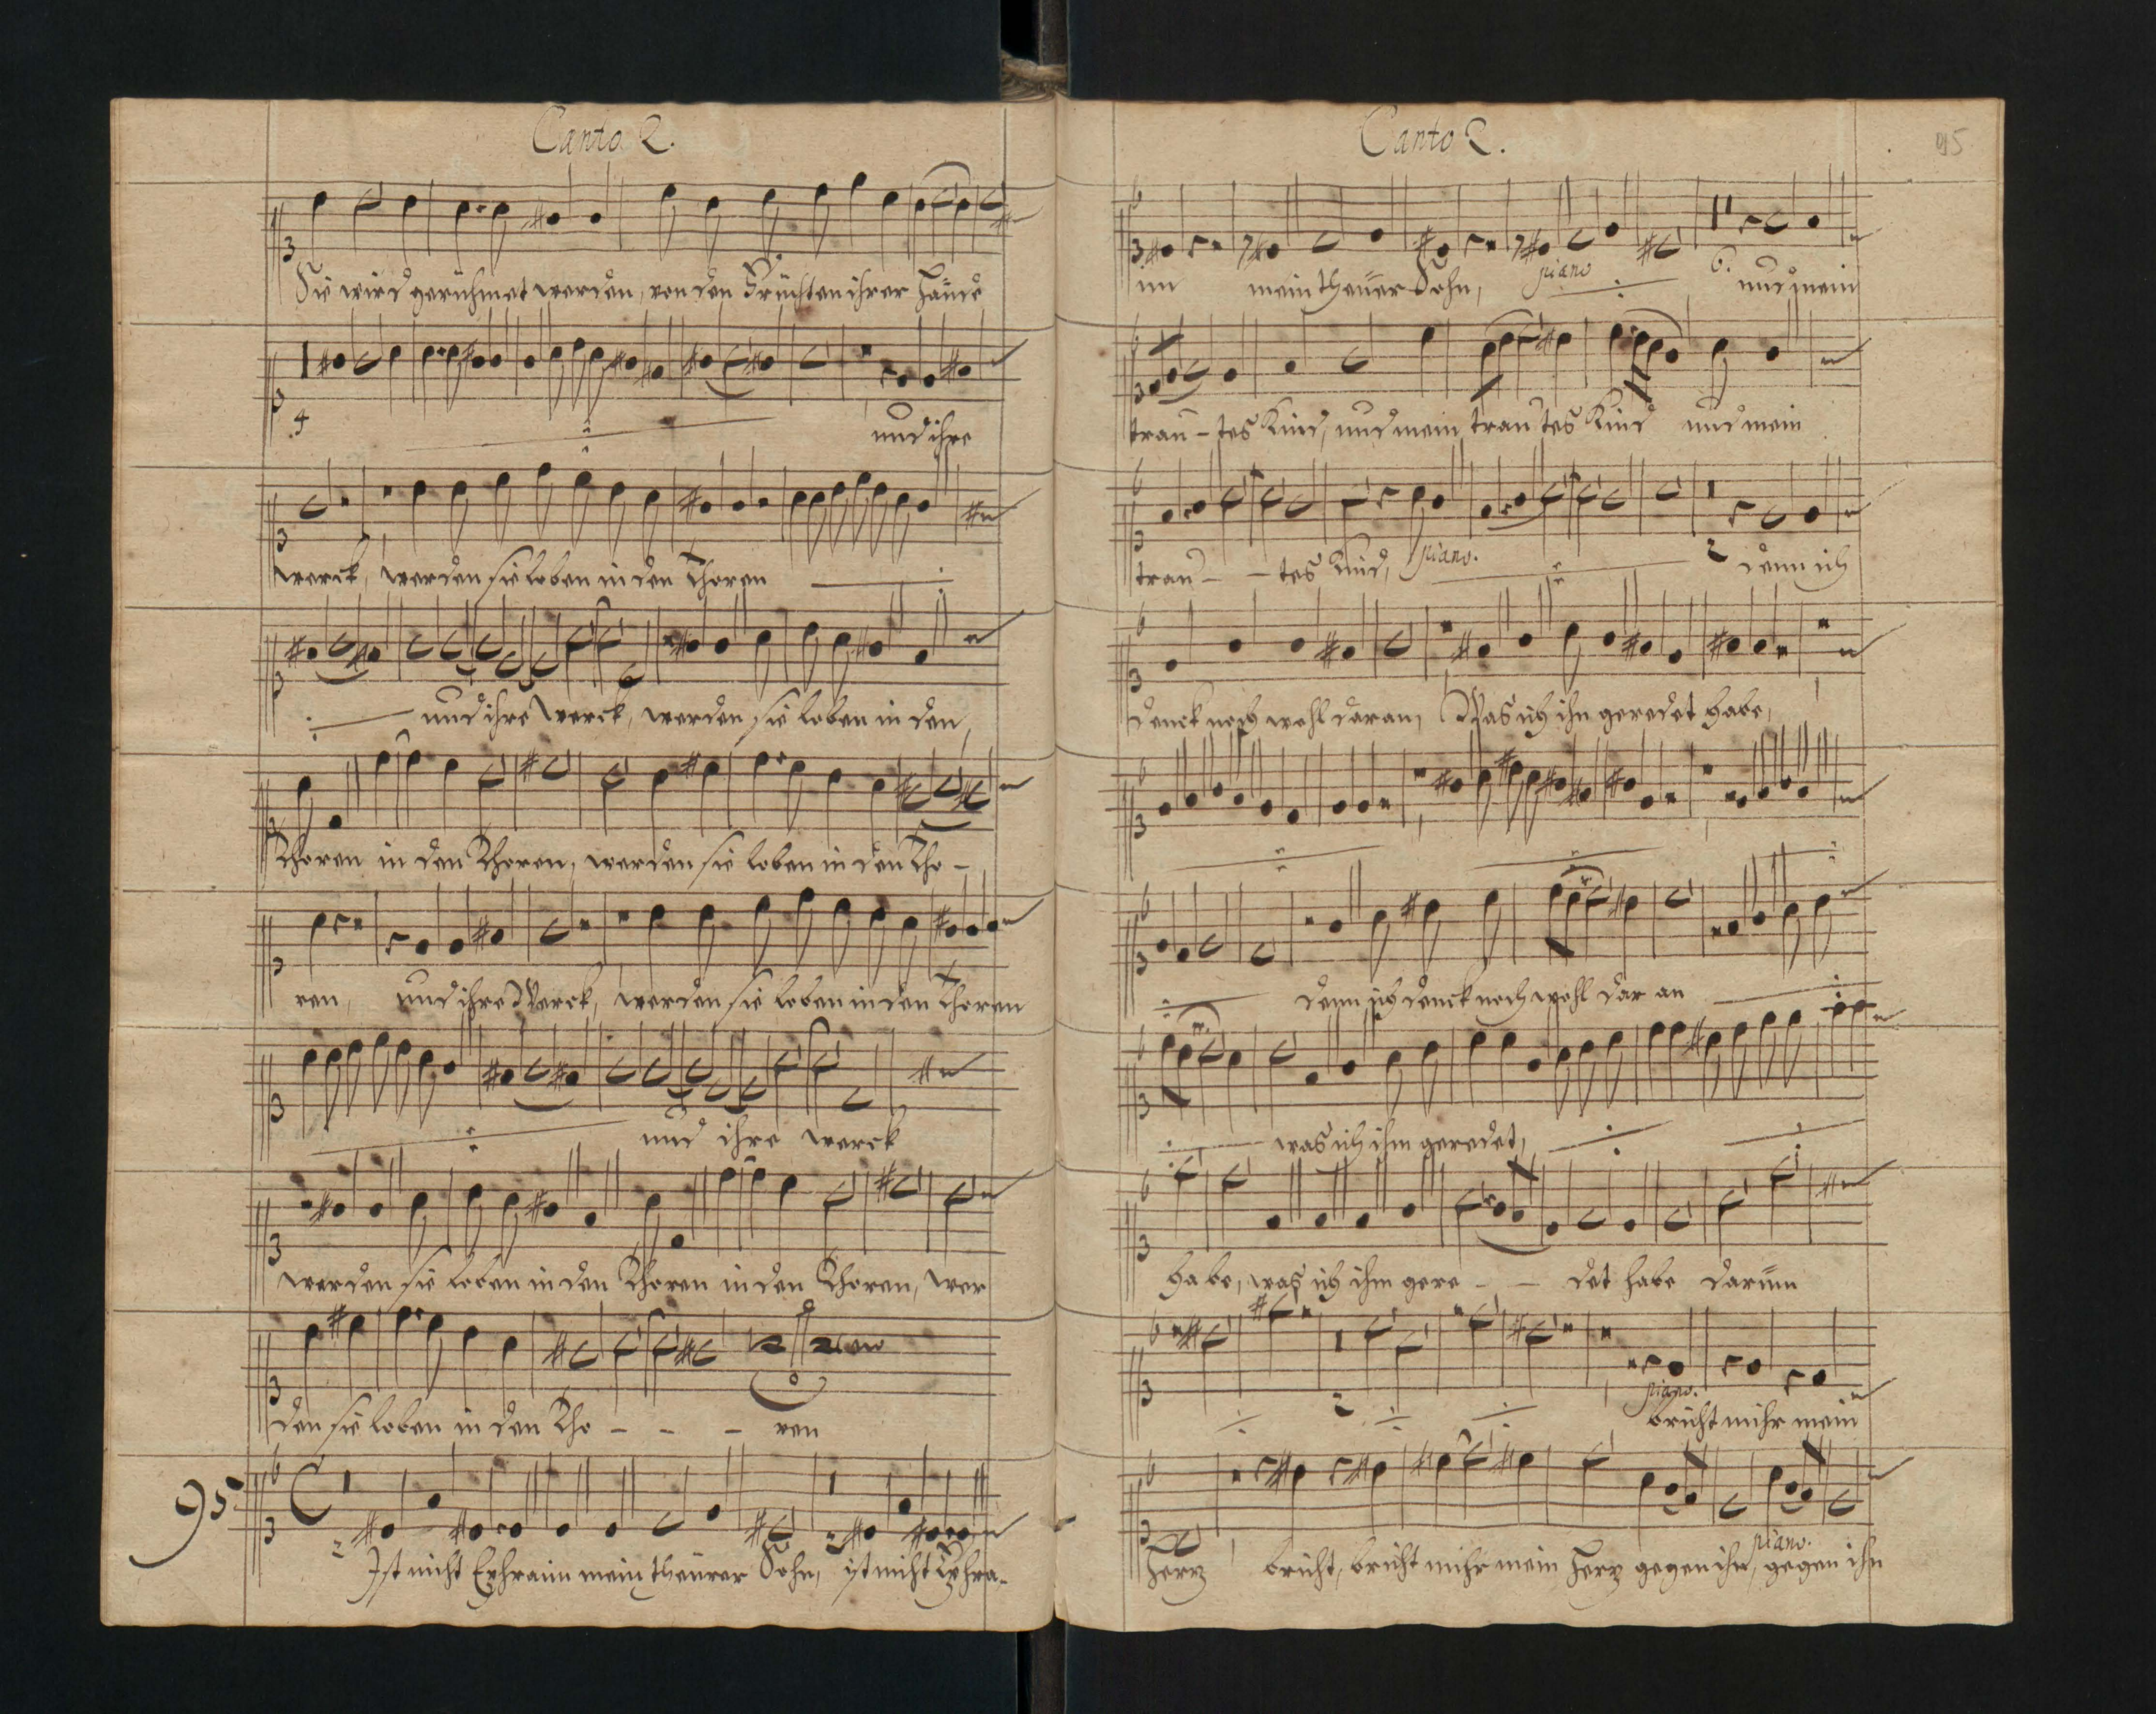 Canto 2.
Sie wird gerühmet werden, von den Früchten ihrer Hände
4
und ihre
werck, werden sie loben in den Thoren
und ihre Werck, werden sie loben in den
Thoren in den Thoren, werden sie loben in den Tho -
ren, und ihre Werck, werden sie loben in den Thoren
und ihre werck
werden sie loben in den Thoren in den Thoren, wer
den sie loben in den Tho - - - ren
95
Ist nicht Ephraim mein theurer Sohn, ist nicht Ephra-
Canto 2.
95
im mein theurer Sohn, piano 6. und mein
trau - tes Kind, und mein trautes Kind und mein
trau - - tes Kind, piano. 2 denn ich
denck noch wohl daran, Was ich ihn geredet habe,
denn ich denck noch wohl dar an
was ich ihm geredet,
habe, was ich ihm gere - - det habe darum
2 piano. bricht mihr mein
Hertz bricht, bricht mihr mein Hertz gegen ihn, piano. gegen ihn